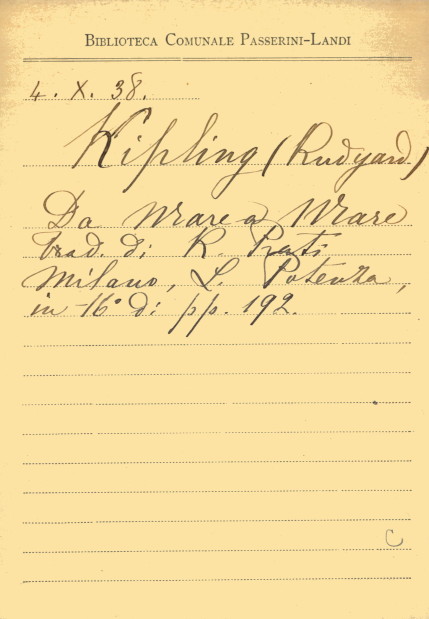 BIBLIOTECA COMUNALE PASSERINI-LANDI
4. X. 38.
Kipling (Rudyard)
Da Mare a Mare
trad. di R. Prati
Milano, L. Potenza,
in-16° di pp. 192.
C